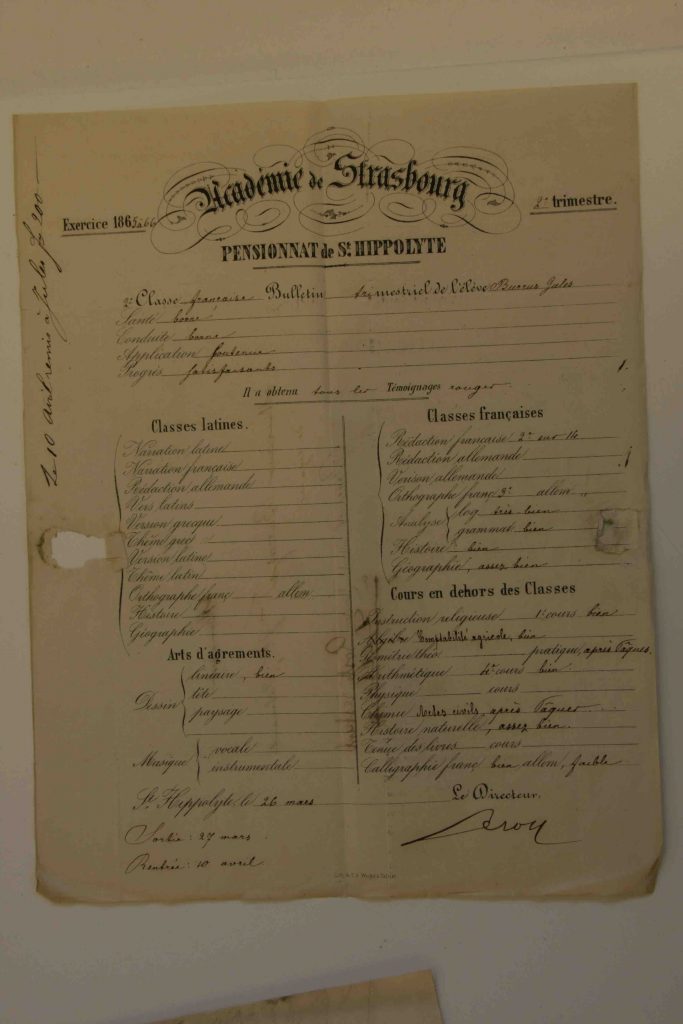 Académie de Strasbourg
Exercice 1865 à 66
2e trimestre.
PENSIONNAT de St HIPPOLYTE
2e Classe française Bulletin trimestriel de l'élève Burrus Jules
Santé bonne
Conduite bonne
Application soutenue
Progrès satisfaisants
Il a obtenu tous les Témoignages rouges
Classes latines.
Narration latine
Narration française
Rédaction allemande
Vers latins
Version grecque
Thême grec
Version latine
Thême latin
Orthographe franç allem
Histoire
Géographie
Arts d'agrements.
Dessin
linéaire, bien
tête
paysage
Musique
vocale
instrumentale
Classes françaises
Rédaction française 2e sur 14
Rédaction allemande
Version allemande
Orthographe franç 3e allem "
Analyse
log très bien
grammat bien
Histoire bien
Géographie, assez bien
Cours en dehors des Classes
Instruction religieuse 1e cours bien
Comptabilité agricole, bien
Géométrie théo pratique, après Pâques.
Arithmétique 4e cours bien
Physique cours
Chimie Actes civils, après Pâques
Histoire naturelle, assez bien.
Tenue des livres cours
Calligraphie franç bien allem, faible
St Hippolyte, le 26 mars
Le Directeur.
Sortie : 27 mars.
Rentrée : 10 avril
Le 10 avril remis à Jules f 200.—